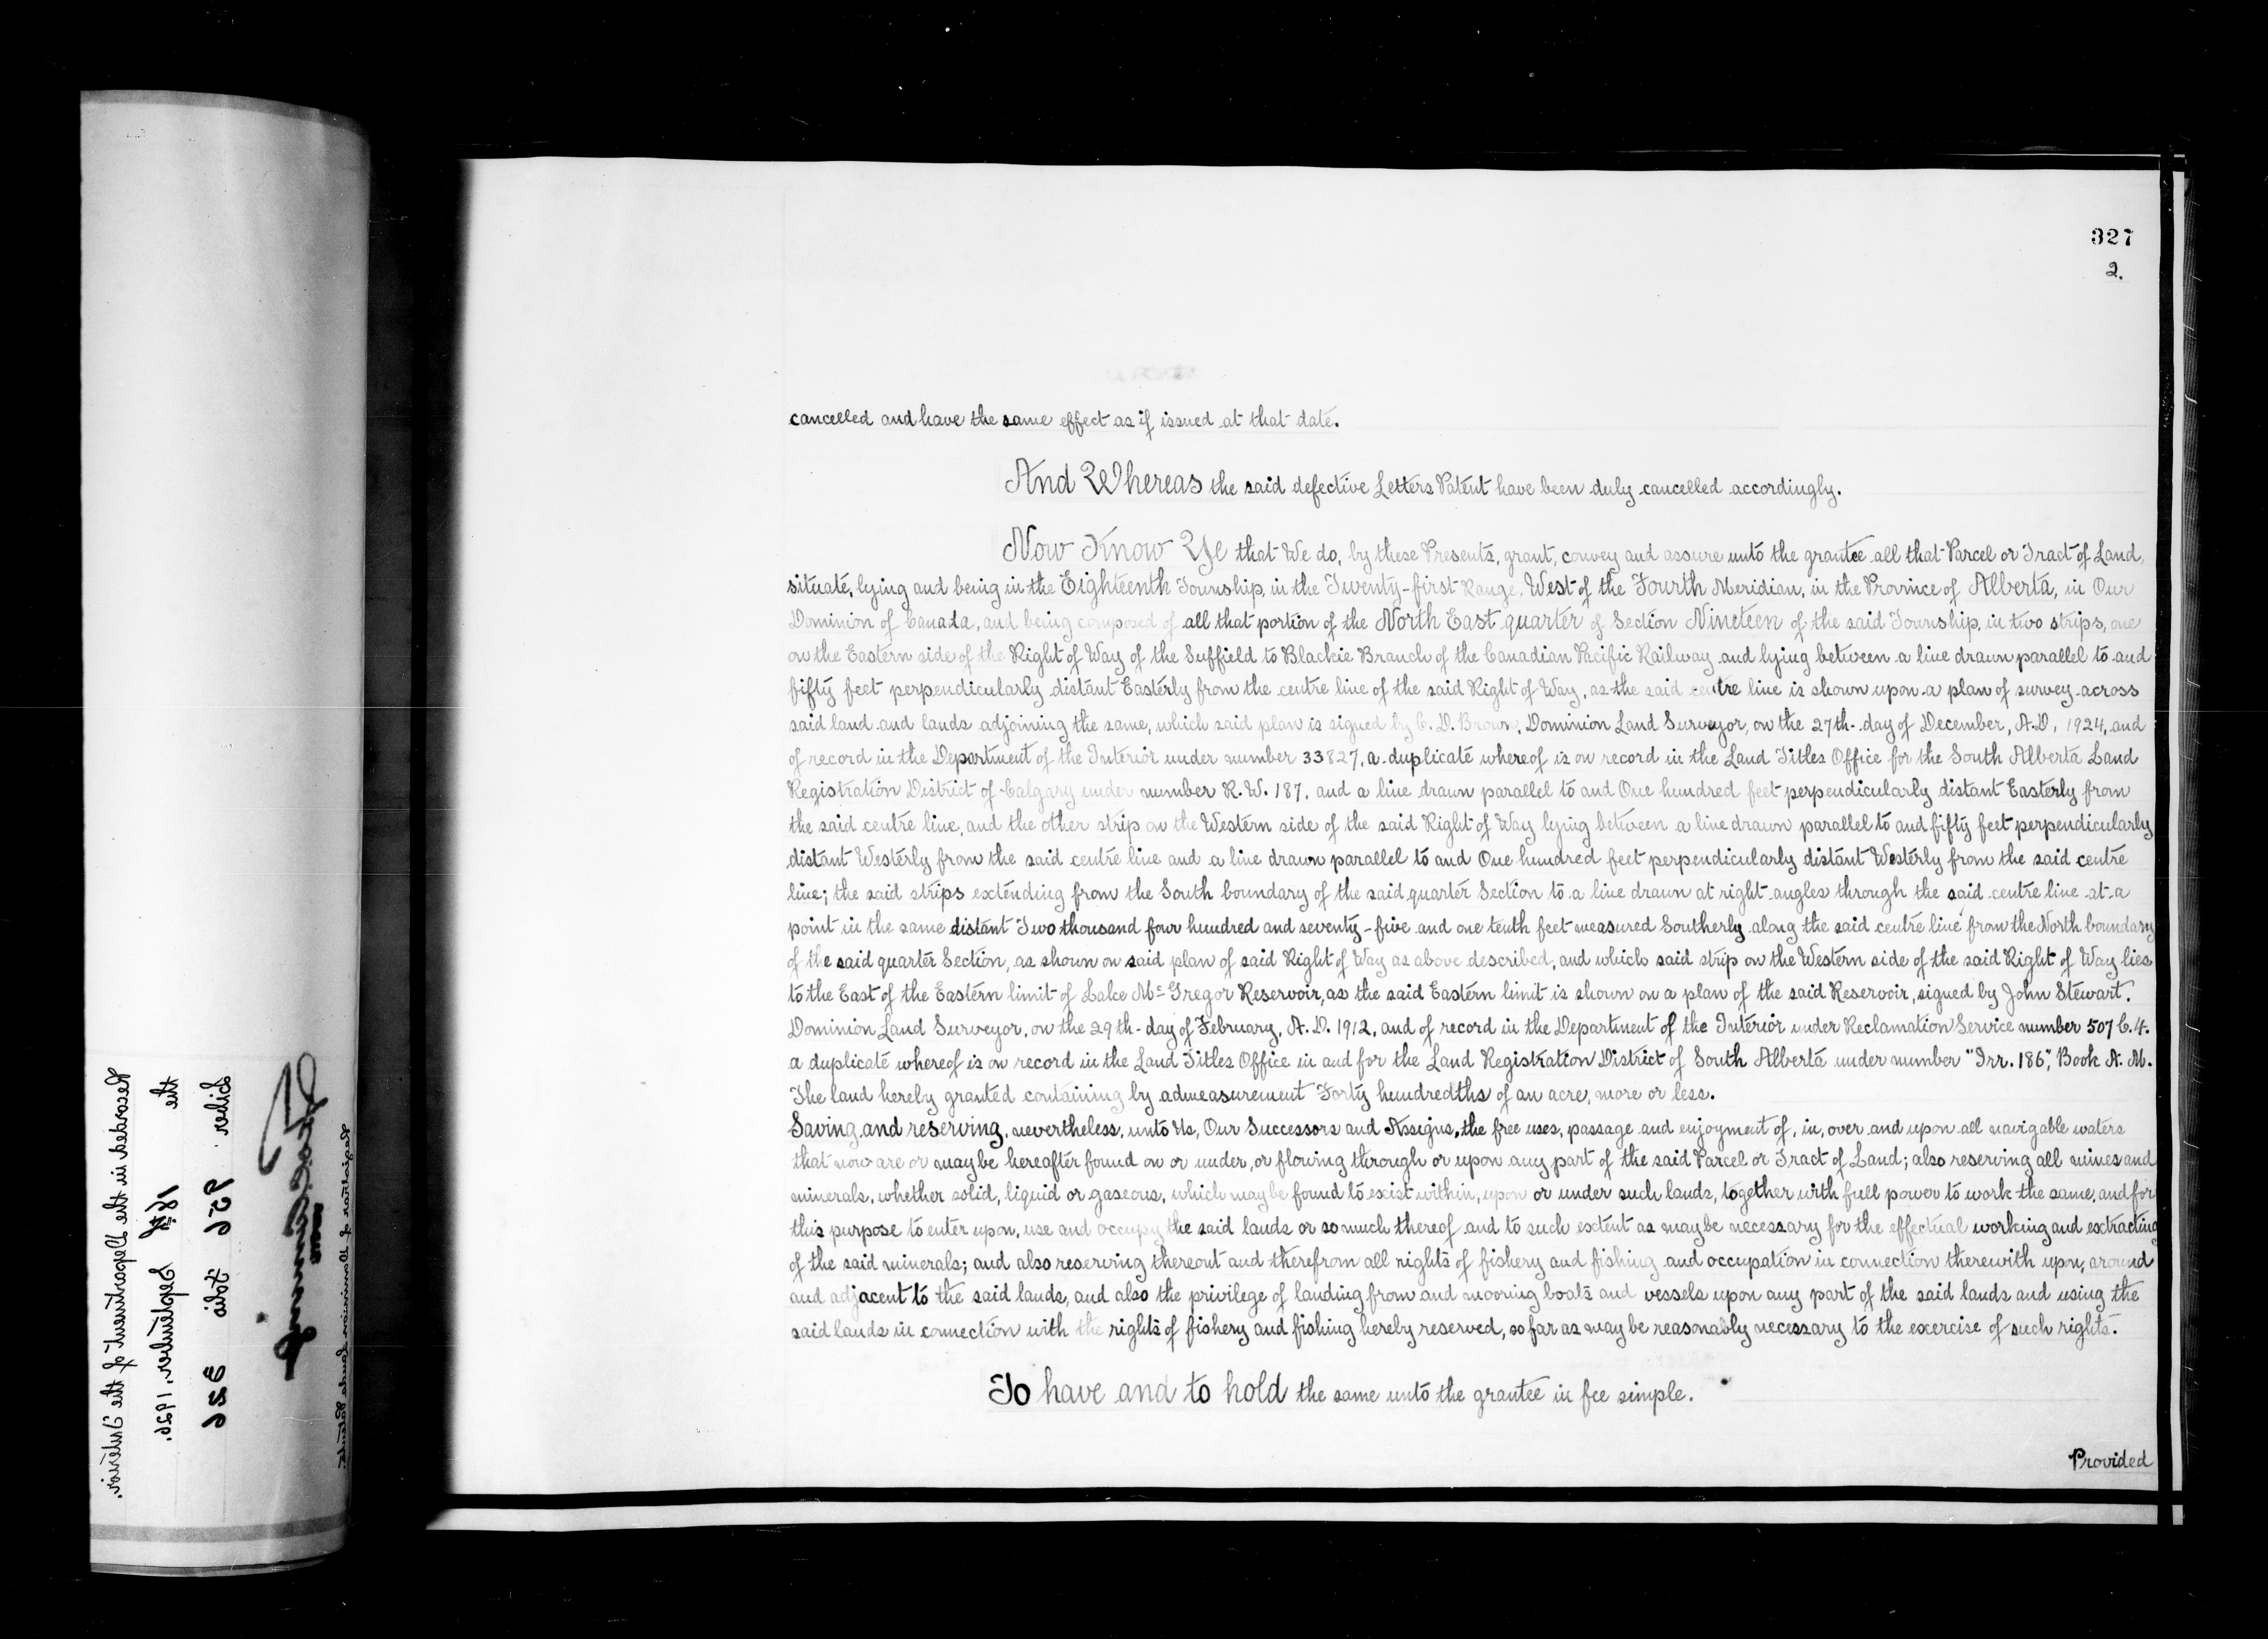 327
2.
cancelled and have the same effect as if issued at that date.
And Whereas the said defective Letters Patent have been duly cancelled accordingly.
Now Know Ye that We do, by these Presents, grant, convey and assure unto the grantee all that Parcel or Tract of Land,
situate, lying and being in the Eighteenth Township, in the Twenty-first Range, West of the Fourth Meridian, in the Province of Alberta, in Our
Dominion of Canada, and being composed of all that portion of the North East quarter of Section Nineteen of the said Township, in two strips, one
on the Eastern side of the Right of Way of the Suffield to Blackie Branch of the Canadian Pacific Railway and lying between a line drawn parallel to and
fifty feet perpendicularly distant Easterly from the centre line of the said Right of Way, as the said centre line is shown upon a plan of survey across
said land and lands adjoining the same, which said plan is signed by C. D. Brown, Dominion Land Surveyor, on the 27th day of December, A.D. 1924, and
of record in the Department of the Interior under number 33827, a duplicate whereof is on record in the Land Titles Office for the South Alberta Land
Registration District of Calgary under number R.W. 187, and a line drawn parallel to and One hundred feet perpendicularly distant Easterly from
the said centre line, and the other strip on the Western side of the said Right of Way lying between a line drawn parallel to and fifty feet perpendicularly
distant Westerly from the said centre line and a line drawn parallel to and One hundred feet perpendicularly distant Westerly from the said centre
line; the said strips extending from the South boundary of the said quarter Section to a line drawn at right angles through the said centre line at a
point in the same distant Two thousand four hundred and seventy-five and one tenth feet measured Southerly along the said centre line from the North boundary
of the said quarter Section, as shown on said plan of said Right of Way as above described, and which said strip on the Western side of the said Right of Way lies
to the East of the Eastern limit of Lake McGregor Reservoir, as the said Eastern limit is shown on a plan of the said Reservoir, signed by John Stewart,
Dominion Land Surveyor, on the 29th day of February, A.D. 1912, and of record in the Department of the Interior under Reclamation Service number 507 C.4.
a duplicate whereof is on record in the Land Titles Office in and for the Land Registration District of South Alberta under number "Irr. 186", Book A. M.
The land hereby granted containing by admeasurement Forty hundredths of an acre, more or less.
Saving and reserving, nevertheless, unto Us, Our Successors and Assigns, the free uses, passage and enjoyment of, in, over and upon all navigable waters
that now are or may be hereafter found on or under, or flowing through or upon any part of the said Parcel or Tract of Land; also reserving all mines and
minerals, whether solid, liquid or gaseous, which may be found to exist within, upon or under such lands, together with full power to work the same, and for
this purpose to enter upon, use and occupy the said lands or so much thereof and to such extent as may be necessary for the effectual working and extracting
of the said minerals; and also reserving thereout and therefrom all rights of fishery and fishing and occupation in connection therewith upon, around
and adjacent to the said lands, and also the privilege of landing from and mooring boats and vessels upon any part of the said lands and using the
said lands in connection with the rights of fishery and fishing hereby reserved, so far as may be reasonably necessary to the exercise of such rights.
To have and to hold the same unto the grantee in fee simple.
Provided
Recorded in the Department of the Interior,
the 18th September, 1926,
Liber 956 Folio 326
Registrar of Dominion Lands Patents.